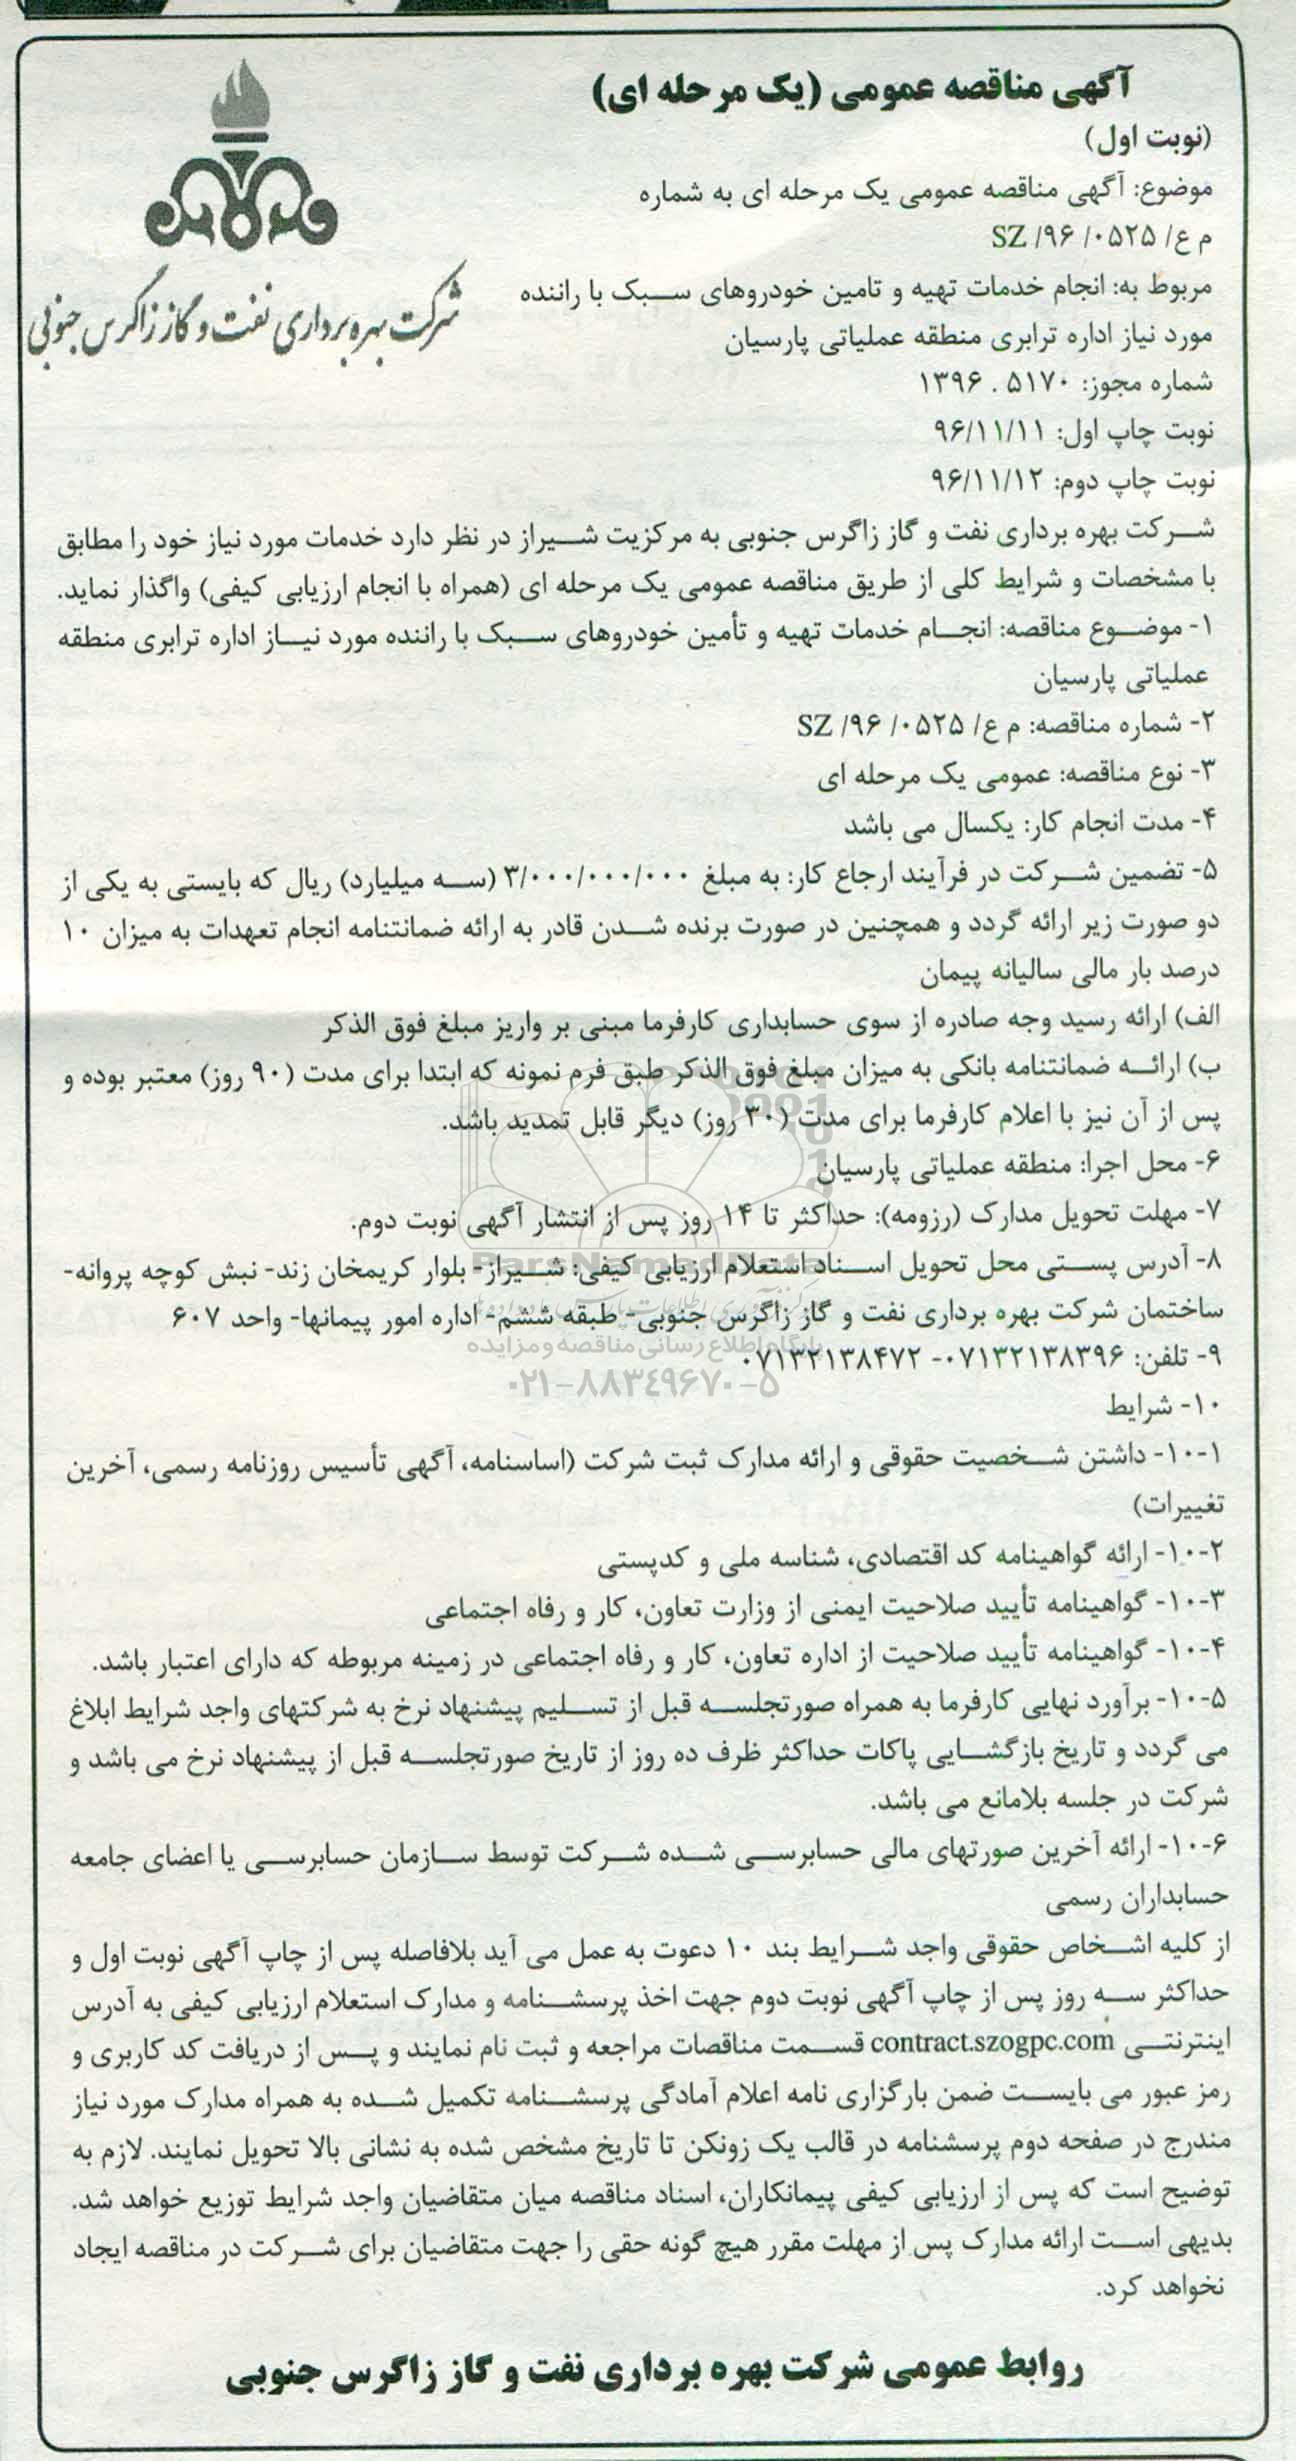 آگهی مناقصه عمومی (یک مرحله ای)
(نوبت اول)
موضوع: آگهی مناقصه عمومی یک مرحله ای به شماره
م ع/ ۰۵۲۵/ ۹۶/ SZ
مربوط به: انجام خدمات تهیه و تامین خودروهای سبک با راننده
مورد نیاز اداره ترابری منطقه عملیاتی پارسیان
شماره مجوز: ۵۱۷۰ . ۱۳۹۶
نوبت چاپ اول: ۹۶/۱۱/۱۱
نوبت چاپ دوم: ۹۶/۱۱/۱۲
شرکت بهره برداری نفت و گاز زاگرس جنوبی
شرکت بهره برداری نفت و گاز زاگرس جنوبی به مرکزیت شیراز در نظر دارد خدمات مورد نیاز خود را مطابق
با مشخصات و شرایط کلی از طریق مناقصه عمومی یک مرحله ای (همراه با انجام ارزیابی کیفی) واگذار نماید.
۱- موضوع مناقصه: انجام خدمات تهیه و تأمین خودروهای سبک با راننده مورد نیاز اداره ترابری منطقه
عملیاتی پارسیان
۲- شماره مناقصه: م ع/ ۰۵۲۵/ ۹۶/ SZ
۳- نوع مناقصه: عمومی یک مرحله ای
۴- مدت انجام کار: یکسال می باشد
۵- تضمین شرکت در فرآیند ارجاع کار: به مبلغ ۳/۰۰۰/۰۰۰/۰۰۰ (سه میلیارد) ریال که بایستی به یکی از
دو صورت زیر ارائه گردد و همچنین در صورت برنده شدن قادر به ارائه ضمانتنامه انجام تعهدات به میزان ۱۰
درصد بار مالی سالیانه پیمان
الف) ارائه رسید وجه صادره از سوی حسابداری کارفرما مبنی بر واریز مبلغ فوق الذکر
ب) ارائه ضمانتنامه بانکی به میزان مبلغ فوق الذکر طبق فرم نمونه که ابتدا برای مدت (۹۰ روز) معتبر بوده و
پس از آن نیز با اعلام کارفرما برای مدت (۳۰ روز) دیگر قابل تمدید باشد.
۶- محل اجرا: منطقه عملیاتی پارسیان
۷- مهلت تحویل مدارک (رزومه): حداکثر تا ۱۴ روز پس از انتشار آگهی نوبت دوم.
ParsNamadData
۸- آدرس پستی محل تحویل اسناد استعلام ارزیابی کیفی: شیراز- بلوار کریمخان زند- نبش کوچه پروانه-
ساختمان شرکت بهره برداری نفت و گاز زاگرس جنوبی- طبقه ششم- اداره امور پیمانها- واحد ۶۰۷
پایگاه اطلاع رسانی مناقصه و مزایده
۹- تلفن: ۰۷۱۳۲۱۳۸۳۹۶- ۰۷۱۳۲۱۳۸۴۷۲
۰۲۱-۸۸۳۴۹۶۷۰-۵
۱۰- شرایط
۱۰-۱- داشتن شخصیت حقوقی و ارائه مدارک ثبت شرکت (اساسنامه، آگهی تأسیس روزنامه رسمی، آخرین
تغییرات)
۱۰-۲- ارائه گواهینامه کد اقتصادی، شناسه ملی و کدپستی
۱۰-۳- گواهینامه تأیید صلاحیت ایمنی از وزارت تعاون، کار و رفاه اجتماعی
۱۰-۴- گواهینامه تأیید صلاحیت از اداره تعاون، کار و رفاه اجتماعی در زمینه مربوطه که دارای اعتبار باشد.
۱۰-۵- برآورد نهایی کارفرما به همراه صورتجلسه قبل از تسلیم پیشنهاد نرخ به شرکتهای واجد شرایط ابلاغ
می گردد و تاریخ بازگشایی پاکات حداکثر ظرف ده روز از تاریخ صورتجلسه قبل از پیشنهاد نرخ می باشد و
شرکت در جلسه بلامانع می باشد.
۱۰-۶- ارائه آخرین صورتهای مالی حسابرسی شده شرکت توسط سازمان حسابرسی یا اعضای جامعه
حسابداران رسمی
از کلیه اشخاص حقوقی واجد شرایط بند ۱۰ دعوت به عمل می آید بلافاصله پس از چاپ آگهی نوبت اول و
حداکثر سه روز پس از چاپ آگهی نوبت دوم جهت اخذ پرسشنامه و مدارک استعلام ارزیابی کیفی به آدرس
اینترنتی contract.szogpc.com قسمت مناقصات مراجعه و ثبت نام نمایند و پس از دریافت کد کاربری و
رمز عبور می بایست ضمن بارگزاری نامه اعلام آمادگی پرسشنامه تکمیل شده به همراه مدارک مورد نیاز
مندرج در صفحه دوم پرسشنامه در قالب یک زونکن تا تاریخ مشخص شده به نشانی بالا تحویل نمایند. لازم به
توضیح است که پس از ارزیابی کیفی پیمانکاران، اسناد مناقصه میان متقاضیان واجد شرایط توزیع خواهد شد.
بدیهی است ارائه مدارک پس از مهلت مقرر هیچ گونه حقی را جهت متقاضیان برای شرکت در مناقصه ایجاد
نخواهد کرد.
روابط عمومی شرکت بهره برداری نفت و گاز زاگرس جنوبی